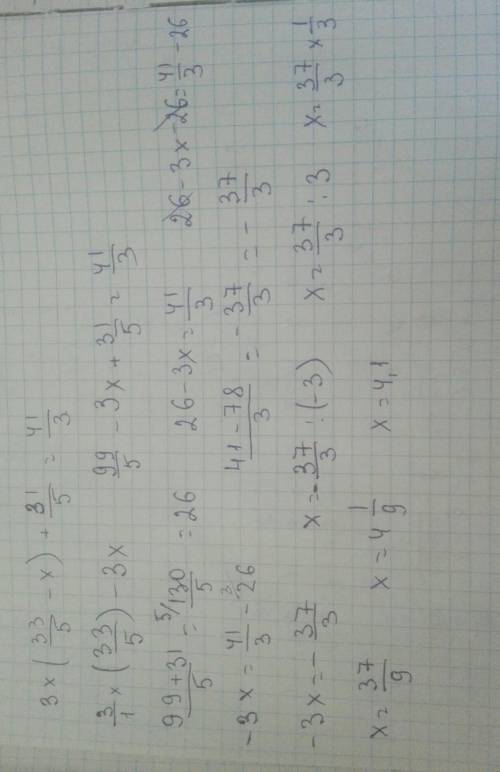 3 x (33/5 - x) + 31/5 = 41/3
3/1 x (33/5) - 3x 99/5 - 3x + 31/5 = 41/3
99+31/5 = 5/130/5 = 26 26 - 3x = 41/3 26 - 3x - 26 = 41/3 - 26
-3x = 41/3 - 3/26 41-78/3 = -37/3 = -37/3
-3x = -37/3 x = -37/3 : (-3) x = 37/3 : 3 x = 37/3 x 1/3
x = 37/9 x = 4 1/9 x = 4,1